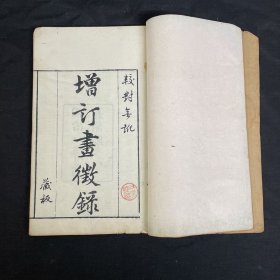 校對無訛
增訂畫徵錄
藏板